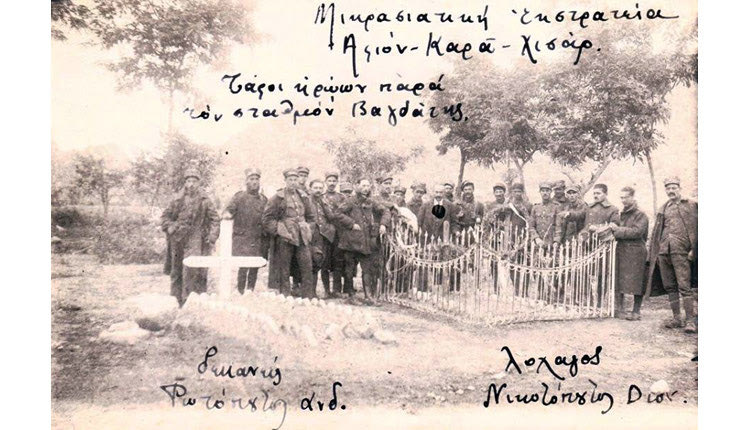 Μικρασιατική Ἐκστρατεία
Ἀφιόν-Καρά-Χισάρ.
Τάφοι ἡρώων παρά
τόν σταθμόν Βαγδάτης,
δεκανεύς
Φωτόπουλος Ἀνδ.
λοχαγός
Νικοτόπουλος Διον.